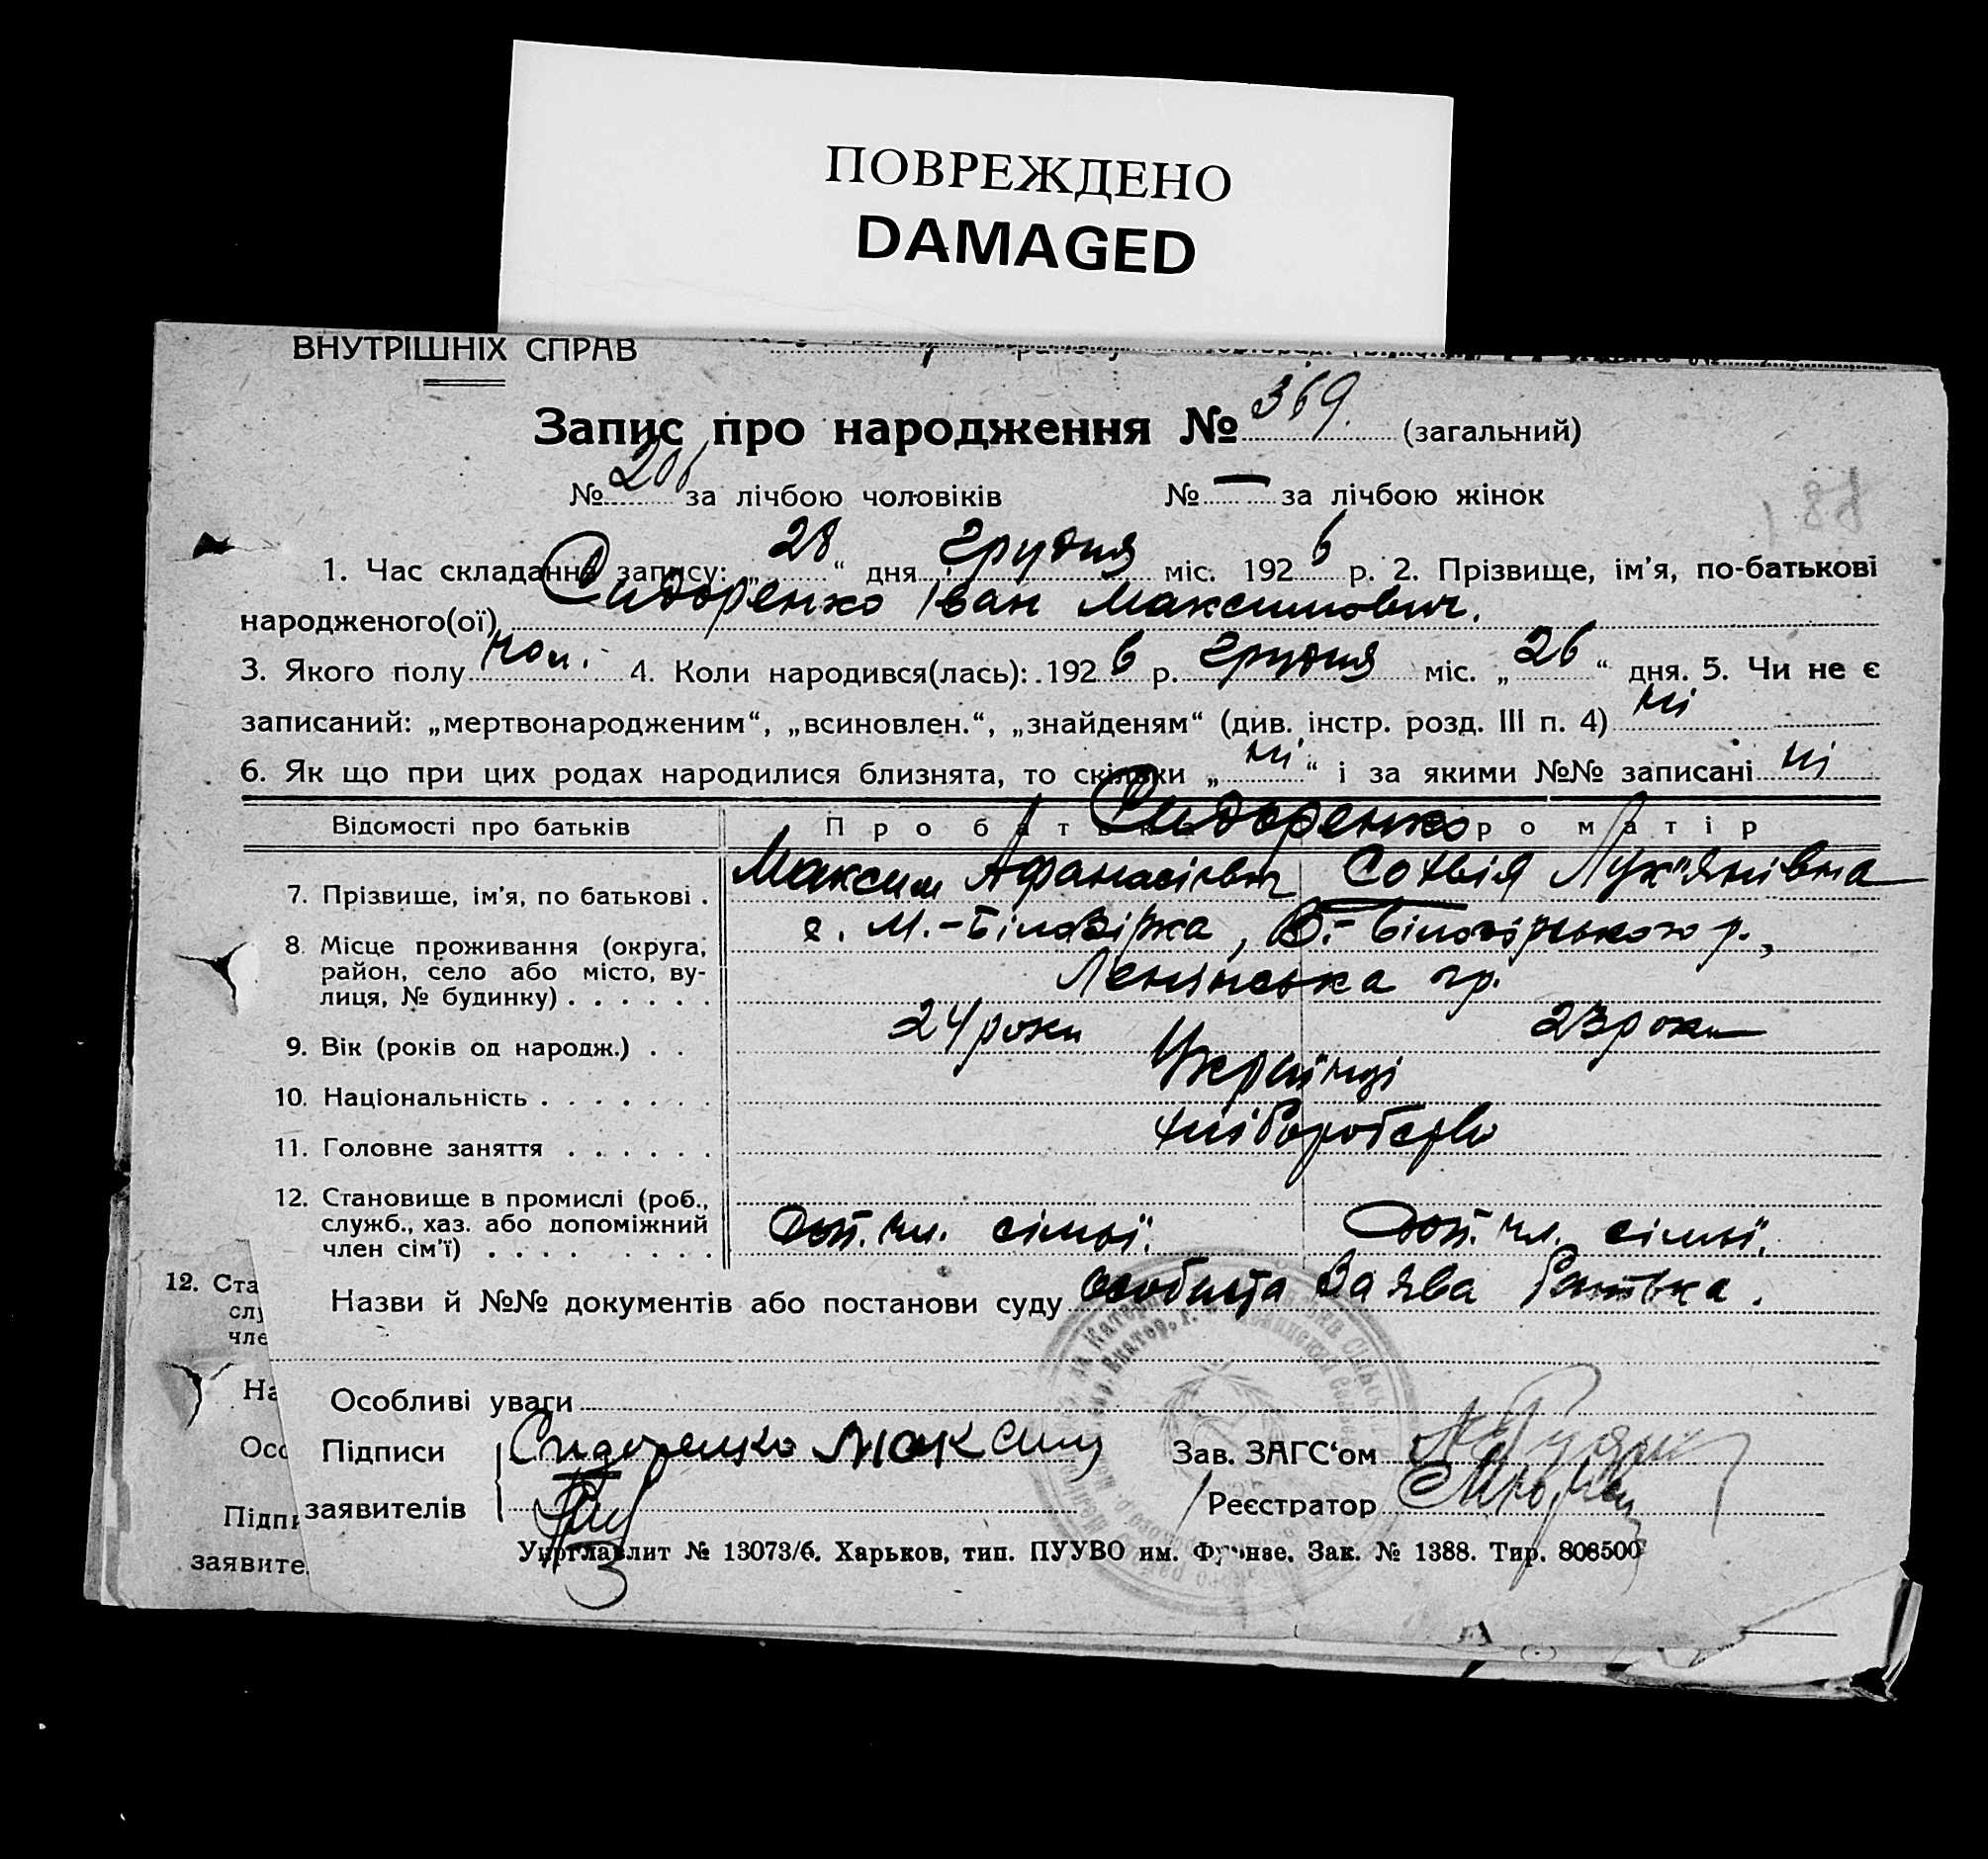 ПОВРЕЖДЕНО
DAMAGED
ВНУТРІШНІХ СПРАВ
Запис про народження № 369. (загальний)
№ 206 за лічбою чоловіків № — за лічбою жінок
1. Час складання запису: „28“ дня грудня міс. 1926 р. 2. Прізвище, ім'я, по-батькові
народженого(ої) Сидоренко Іван Максимович.
3. Якого полу чол. 4. Коли народився(лась): 1926 р. грудня міс. „26“ дня. 5. Чи не є
записаний: „мертвонародженим“, „всиновлен.“, „знайденям“ (див. інстр. розд. III п. 4) ні
6. Як що при цих родах народилися близнята, то скільки „ні“ і за якими №№ записані ні
Відомості про батьків Про батька Про матір
Сидоренко
7. Прізвище, ім'я, по батькові . Максим Афанасієвич Сотвія Лук"янівна
8. Місце проживання (округа, с. М.-Білозірка, В.-Білозірського р.,
район, село або місто, ву-
лиця, № будинку) . . . . . . Ленінська гр.
9. Вік (років од народж.) . . 24 роки 23 роки
10. Національність . . . . . . . Українці
11. Головне заняття . . . . . . хліборобство
12. Становище в промислі (роб.,
служб., хаз. або допоміжний
член сім'ї) . . . . . . . . . Доп. чл. сімьї. Доп. чл. сімьї.
12. Ста
слу
чле
Назви й №№ документів або постанови суду особиста заява батька.
На
Особливі уваги
Осо
Підписи Сидоренко Максим Зав. ЗАГС‘ом
заявителів Реєстратор
Підпи
заявите
Укрглавлит № 13073/6. Харьков, тип. ПУУВО им. Фрунзе. Зак. № 1388. Тир. 808500